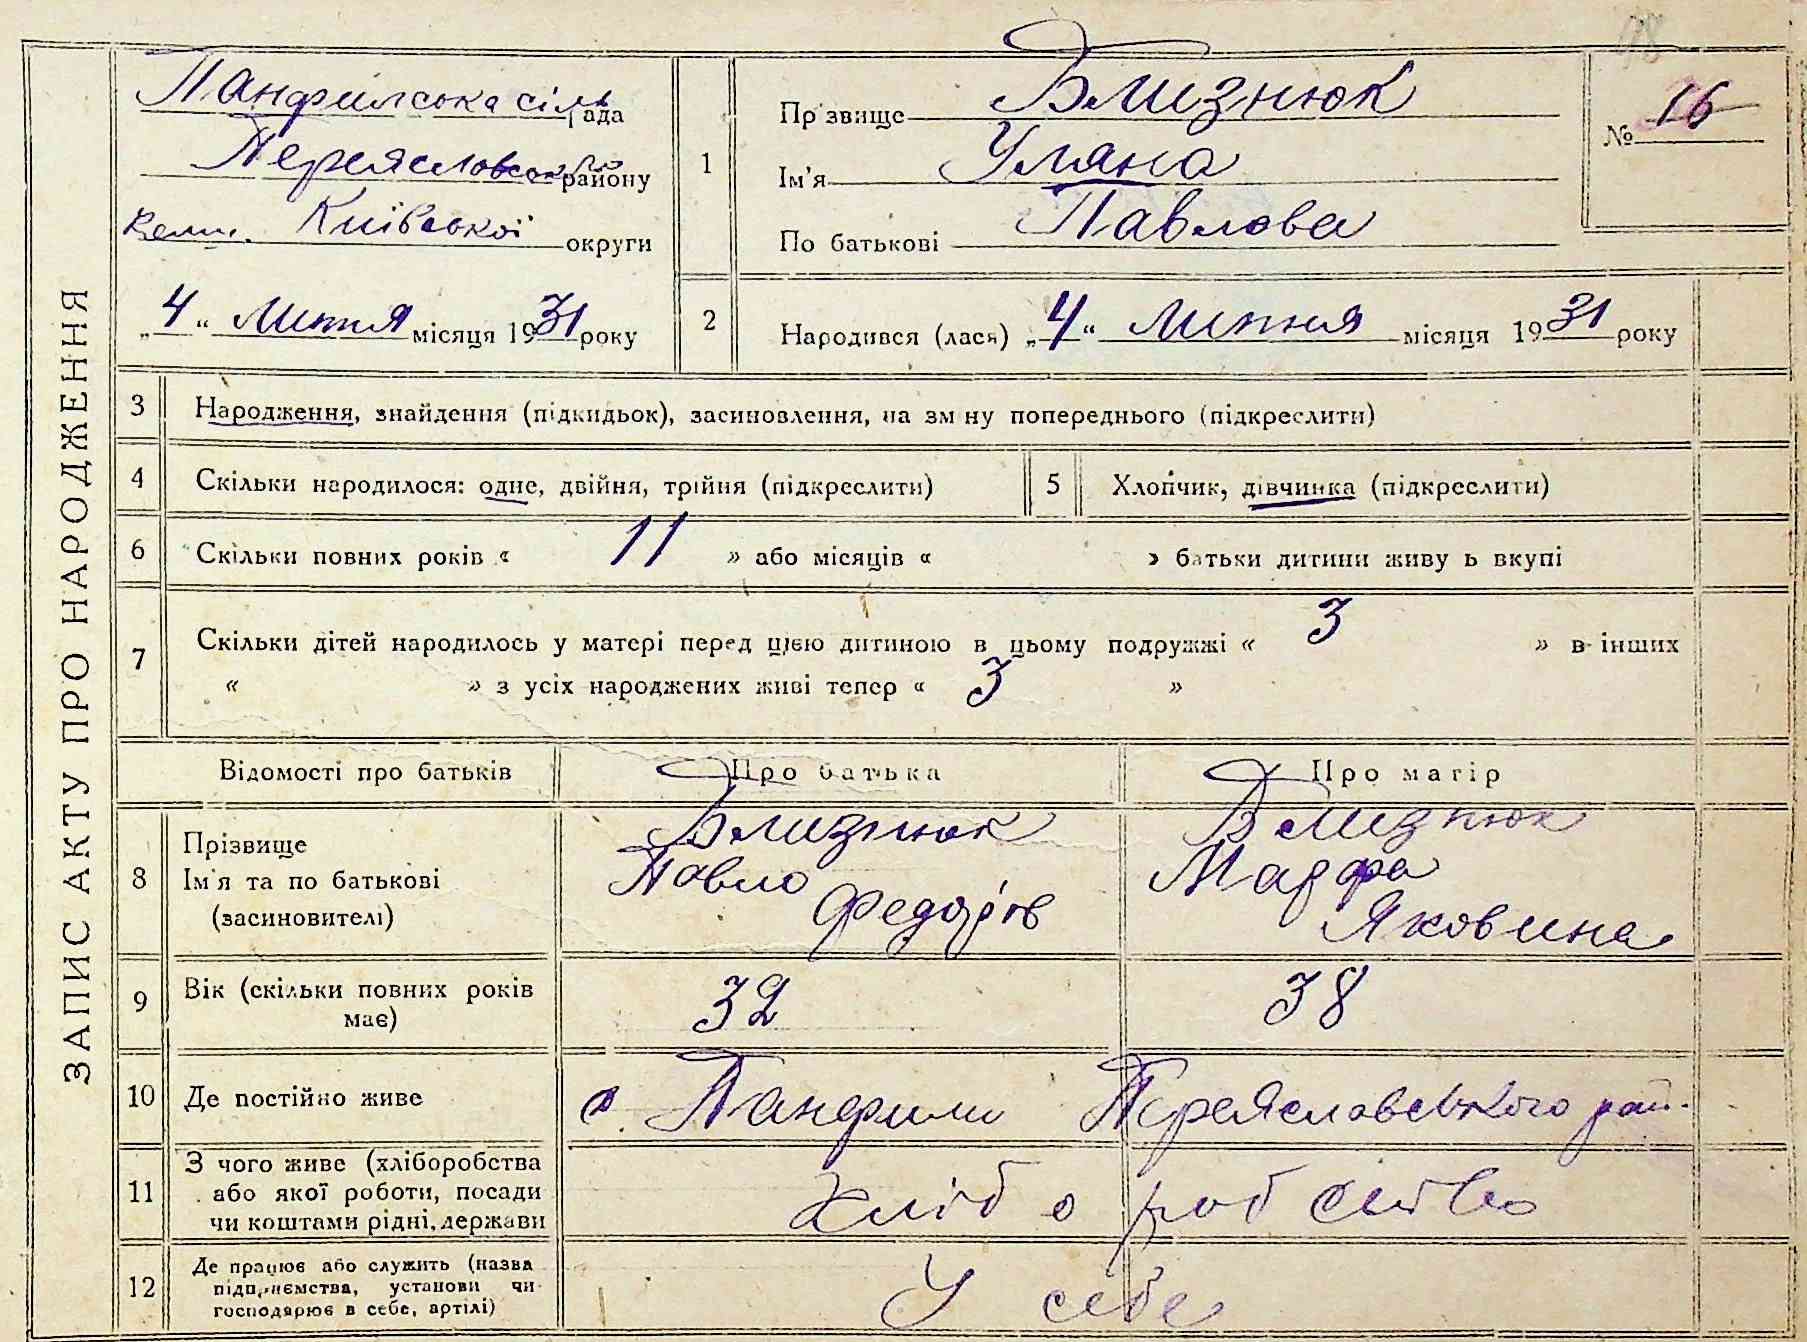 ЗАПИС АКТУ ПРО НАРОДЖЕННЯ
Панфилська сільрада
Переяславськ району
Київської округи
„4“ Липня місяця 1931 року
1
Пр звище Близнюк
Ім'я Уляна
По батькові Павлова
№ 16
2
Народився (лася) „4“ Липня місяця 1931 року
3 Народження, знайдення (підкидьок), засиновлення, на зм ну попереднього (підкреслити)
4 Скільки народилося: одне, двійня, трійня (підкреслити)
5 Хлопчик, дівчинка (підкреслити)
6 Скільки повних років « 11 » або місяців « » батьки дитини живу ь вкупі
7 Скільки дітей народилось у матері перед цією дитиною в цьому подружжі « 3 » в інших
« » з усіх народжених живі тепер « 3 »
Відомості про батьків Про батька Про матір
8 Прізвище
Ім'я та по батькові
(засиновителі)
Близнюк
Павло
Федорів
Близнюк
Марфа
Яковина
9 Вік (скільки повних років
має)
32 38
10 Де постійно живе с. Панфили Переяславського рай.
11 З чого живе (хліборобства
або якої роботи, посади
чи коштами рідні, держави
Хліборобство
12 Де працює або служить (назва
підприємства, установи чи
господарює в себе, артілі)
У себе